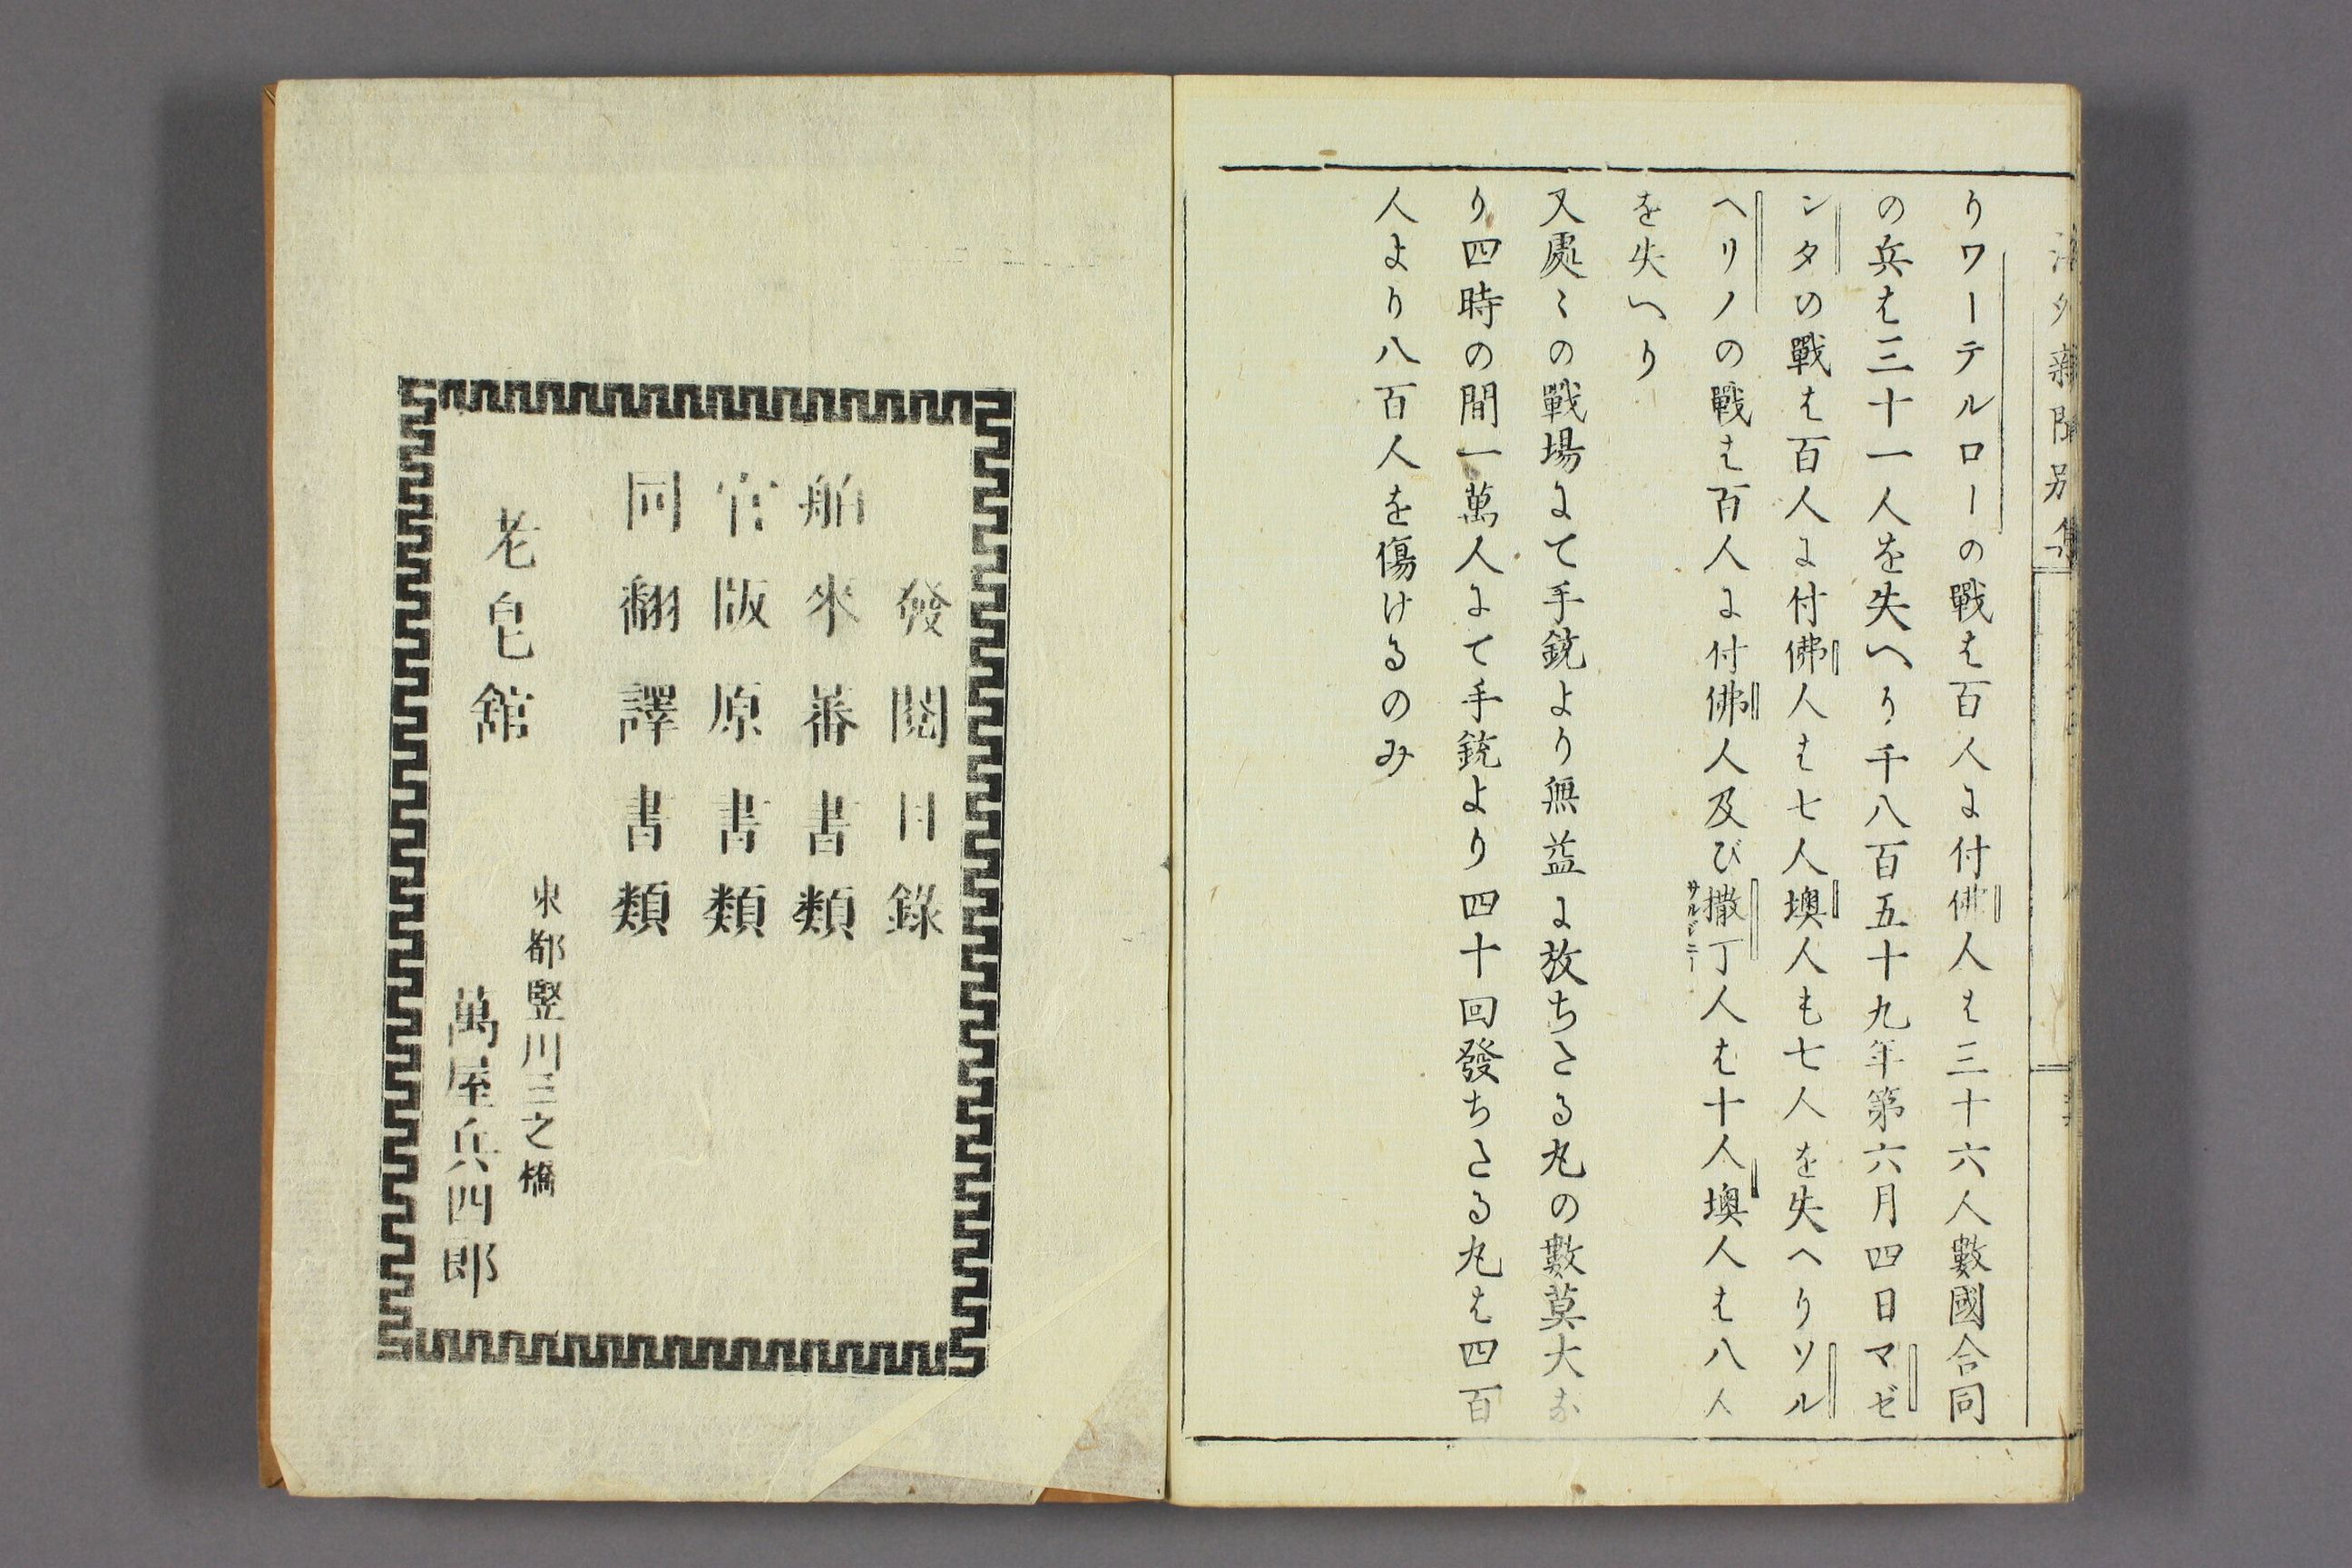 海外新聞別集
りワーテルローの戰は百人に付佛人は三十六人數國合同
の兵は三十一人を失へり千八百五十九年第六月四日マゼ
ンタの戰は百人に付佛人は七人墺人も七人を失へりソル
ヘリノの戰は百人に付佛人及び撒丁人は十人墺人は八人
サルジニー
を失へり
又處〻の戰場にて手銃より無益に放ちたる丸の數莫大な
り四時の間一萬人にて手銃より四十回發ちたる丸は四百
人より八百人を傷けるのみ
發閲目錄
舶來蕃書類
官版原書類
同翻譯書類
東都竪川三之橋
老皂舘
萬屋兵四郎